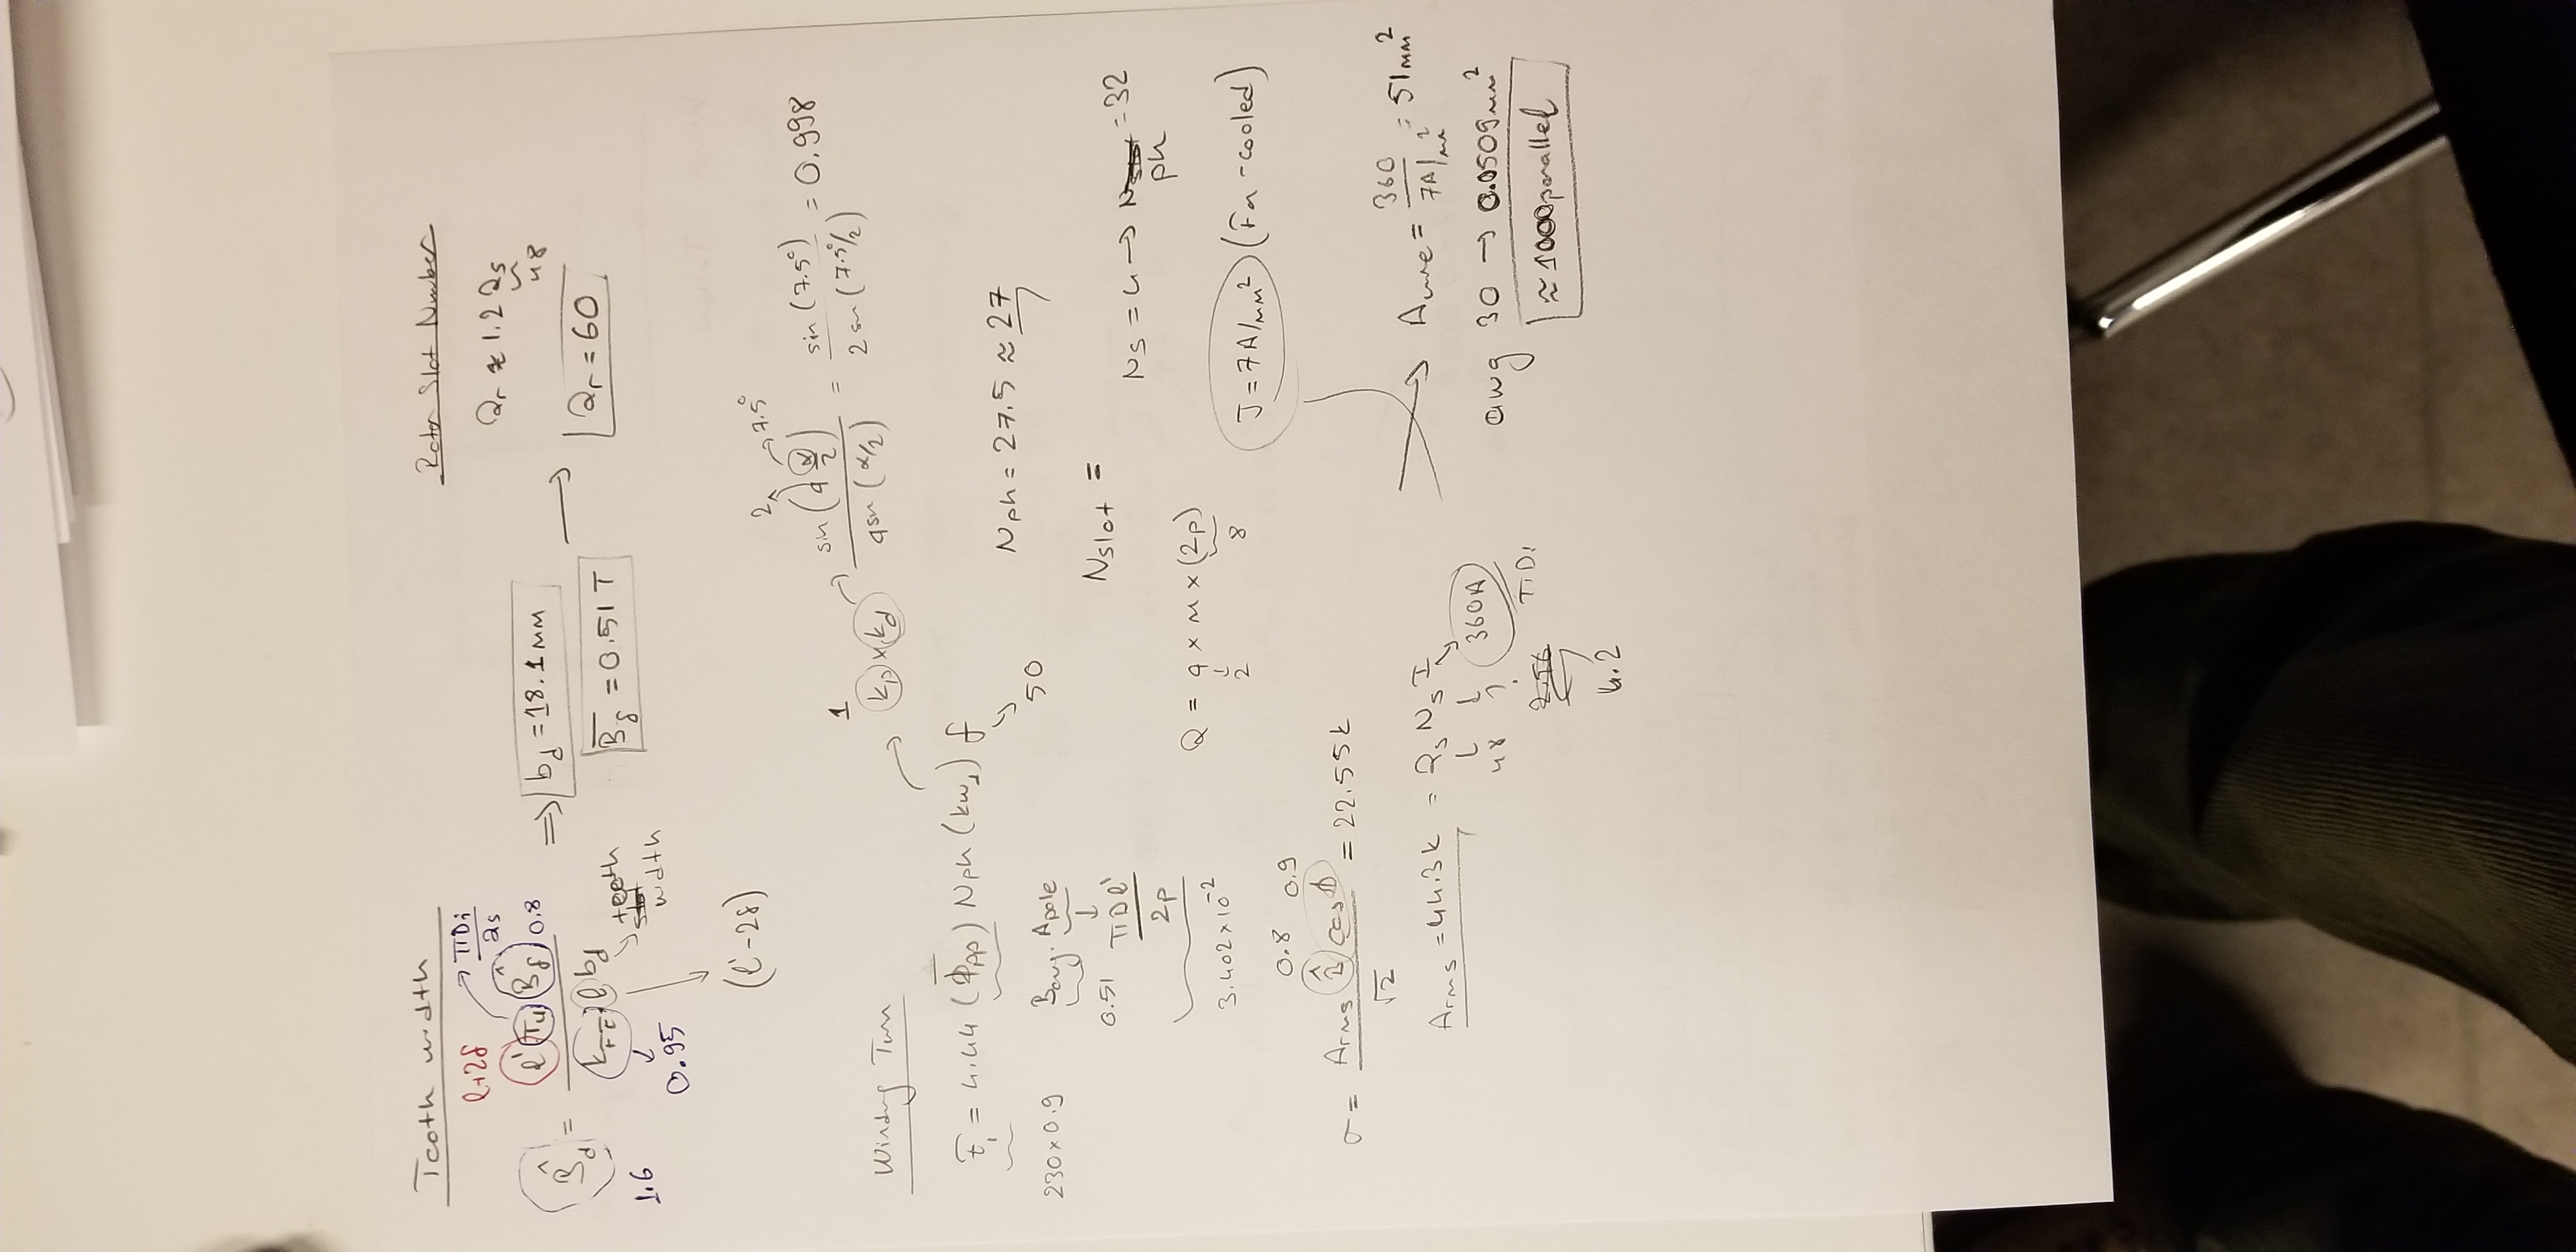 Teeth width
l+2δ
πDi
Qs
B̂d = l' Tu B̂δ 0.8
kFE l bd
1.6
0.95
teeth
width
(l'-2δ)
⇒ bd = 18.1 mm
B̄δ = 0.51 T
Rotor Slot Number
Qr ≈ 1.2 Qs
48
Qr = 60
Winding Turn
1
kp × kd
2 7.5°
sin (q α/2) / q sin (α/2) = sin (7.5°) / 2 sin (7.5°/2) = 0.998
E1 = 4.44 (Φ̄pp) Nph (kw1) f
50
230 x 0.9
Bavg. Apole
0.51 πDl'
2p
3.402x10^-2
Nph = 27.5 ≈ 27
Nslot =
Ns = 4 → ph = 32
Q = q x m x (2p)
2 8
J = 7A/mm² (Fan-cooled)
0.8 0.9
σ = Arms B̂ cosφ / √2 = 22.55k
Arms = 44.3k = Qs Ns I
48 ? 360A
πDi
2.56
4.2
Awire = 360 / 7A/mm² = 51mm²
awg 30 → 0.0509mm²
≈ 1000 parallel